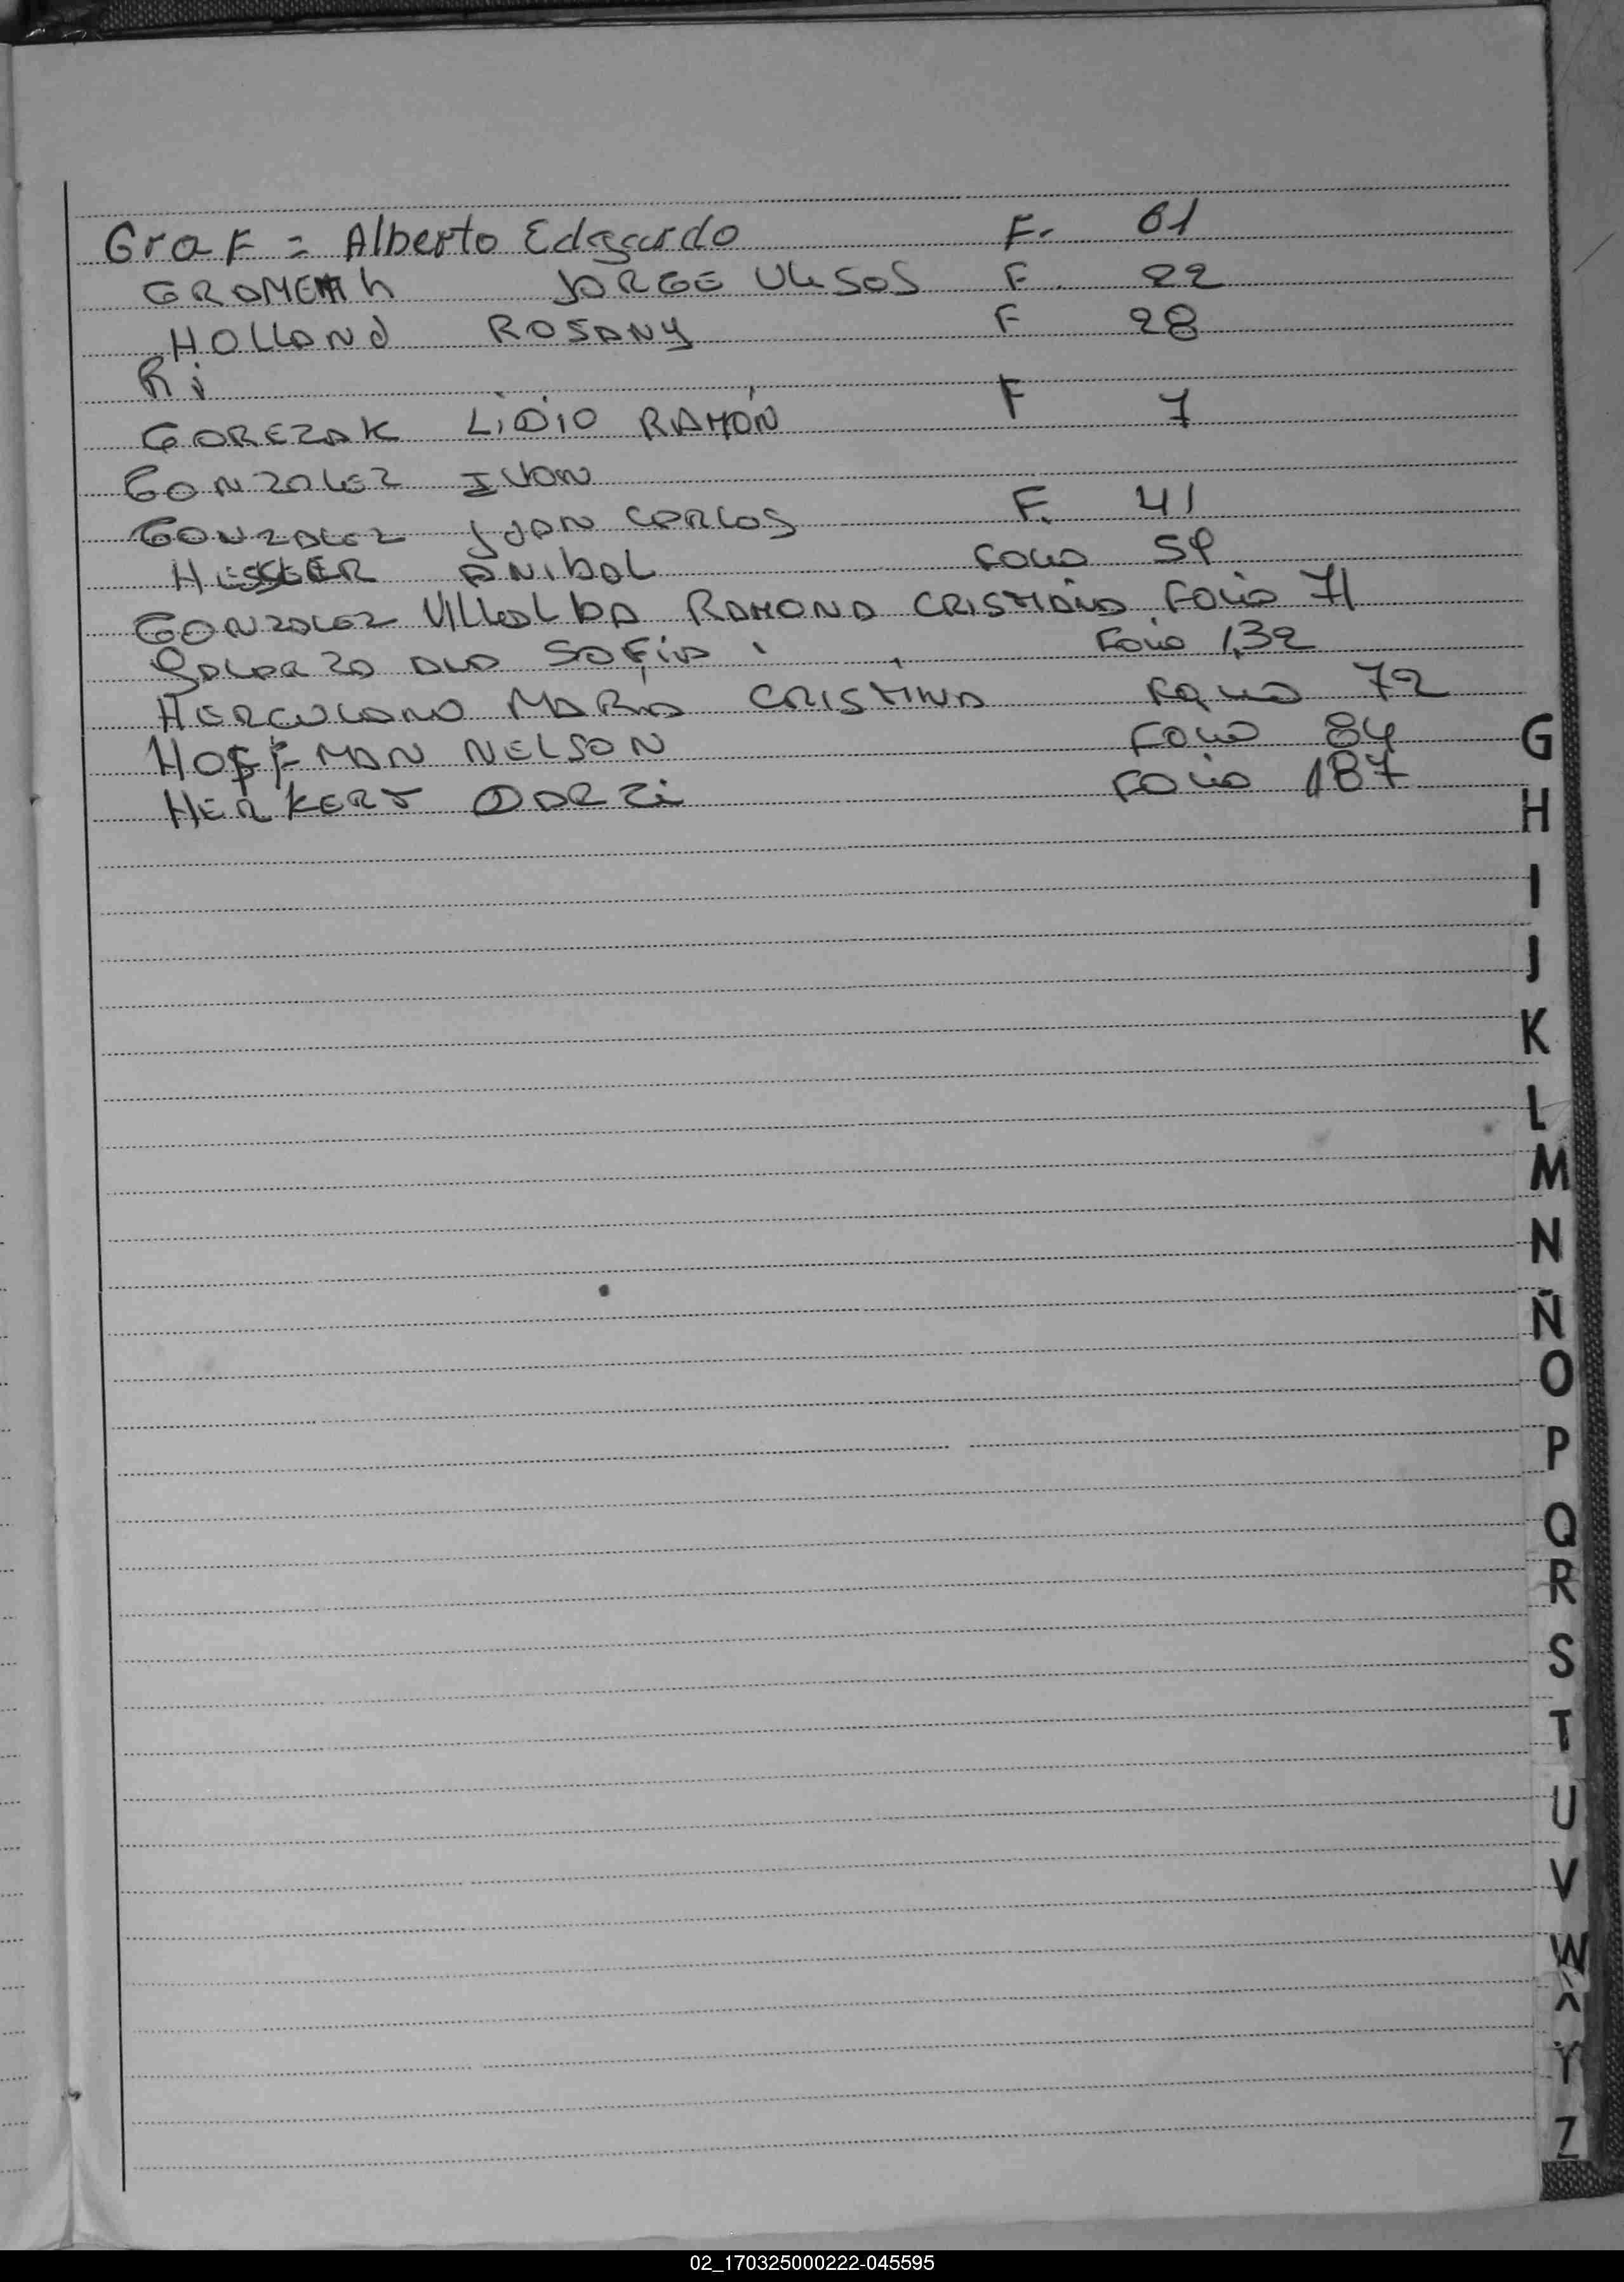 Graf = Alberto Edgardo F. 61
JORGE F. 22
HOLLAND ROSANY F 28
Ri
GOREZAK LIDIO RAMÓN F 7
GONZALEZ IVAN
GONZALEZ JUAN CARLOS F. 41
ANIBAL FOLIO 59
GONZALEZ VILLALBA RAMONA CRISTIANO FOLIO 71
GALARZA ALA SOFIA FOLIO 132
HERCULANO MARIA CRISTINA FOLIO 72
HOFFMAN NELSON FOLIO 84
HERKERT DARZI FOLIO 187
G
H
I
J
K
L
M
N
Ñ
O
P
Q
R
S
T
U
V
W
X
Y
Z
02_170325000222-045595